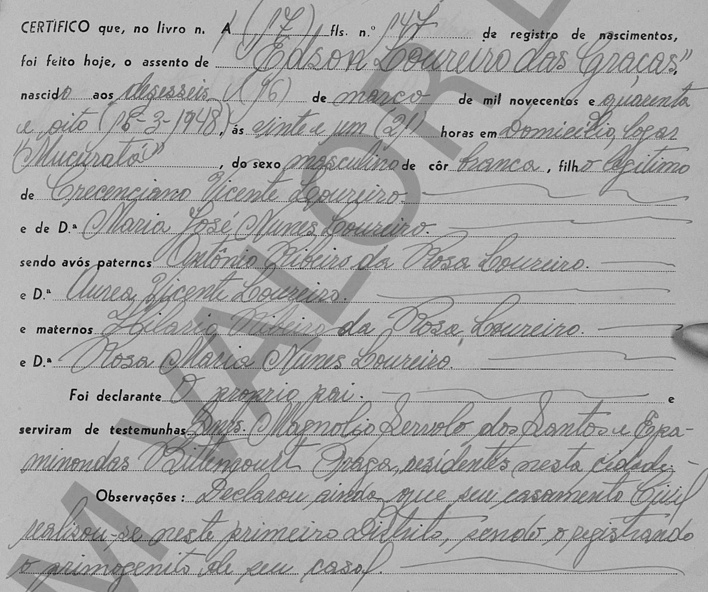 CERTIFICO que, no livro n. A (17) fls. n.º 147 de registro de nascimentos,
foi feito hoje, o assento de "Edson Loureiro das Graças",
nascido aos desesseis (16) de março de mil novecentos e quarenta
e oito (16-3-1948), ás vinte e um 21 horas em Domicilio, logar
"Mucurató", do sexo masculino de côr branca, filho legitimo
de Crecenciano Vicente Loureiro.
e de D.ª Maria José Nunes Loureiro.
sendo avós paternos Antônio Ribeiro da Rosa Loureiro.
e D.ª Aurea Vicente Loureiro.
e maternos Hilario Ribeiro da Rosa Loureiro.
e D.ª Rosa Maria Nunes Loureiro.
Foi declarante O proprio pai. e
serviram de testemunhas Magnolio dos Santos e Epa-
minondas residentes nesta cidade
Observações: Declarou ainda que seu casamento Civil
realisou-se neste primeiro Distrito, sendo o registrando
o primogenito de seu casal.
M VALOR